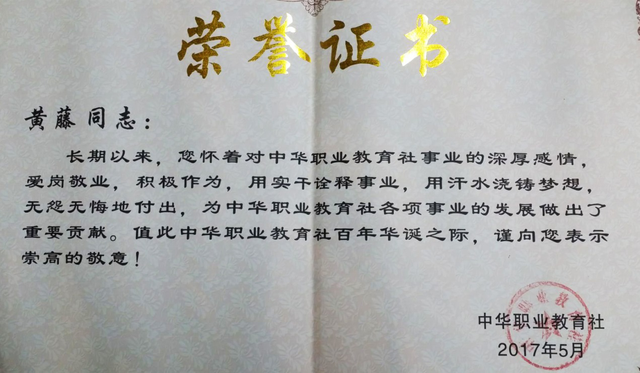 荣誉证书
黄藤同志：
长期以来，您怀着对中华职业教育社事业的深厚感情，
爱岗敬业，积极作为，用实干诠释事业，用汗水浇铸梦想，
无怨无悔地付出，为中华职业教育社各项事业的发展做出了
重要贡献。值此中华职业教育社百年华诞之际，谨向您表示
崇高的敬意！
中华职业教育社
2017年5月